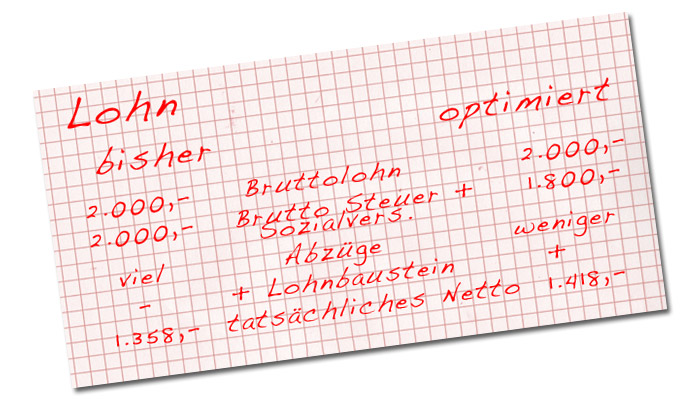 Lohn
bisher optimiert
2.000,- Bruttolohn 2.000,-
2.000,- Brutto Steuer + 1.800,-
Sozialvers.
viel Abzüge weniger
- + Lohnbaustein +
1.358,- tatsächliches Netto 1.418,-